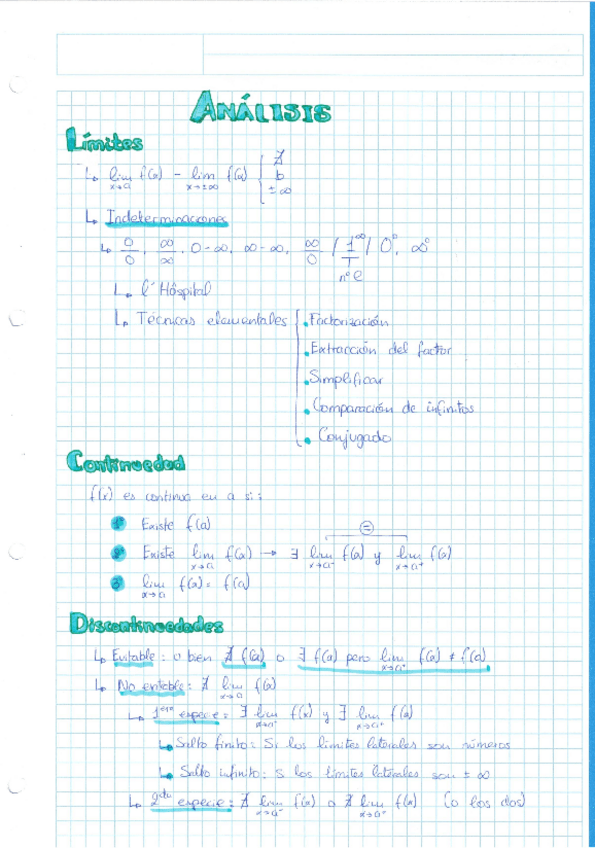 ANÁLISIS
Límites
↳ lim x→a f(x) - lim x→±∞ f(x) { ∄ b ±∞
↳ Indeterminaciones
↳ 0/0, ∞/∞, 0-∞, ∞-∞, ∞/0 / 1^∞ / 0⁰, ∞⁰
nº e
↳ l'Hôspital
↳ Técnicas elementales { • Factorización
• Extracción del factor
• Simplificar
• Comparación de infinitos
• Conjugado
Continuedad
f(x) es continua en a si:
1º Existe f(a)
=
2º Existe lim x→a f(x) → ∃ lim x→a⁻ f(x) y lim x→a⁺ f(x)
3º lim x→a f(x) = f(a)
Discontinuedades
↳ Evitable: o bien ∄ f(a) o ∃ f(a) pero lim x→a f(x) ≠ f(a)
↳ No evitable: ∄ lim x→a f(x)
↳ 1era especie: ∃ lim x→a⁻ f(x) y ∃ lim x→a⁺ f(x)
↳ Salto finito: Si los límites laterales son números
↳ Salto infinito: S los límites laterales son ± ∞
↳ 2da especie: ∄ lim x→a⁻ f(x) o ∄ lim x→a⁺ f(x) (o los dos)